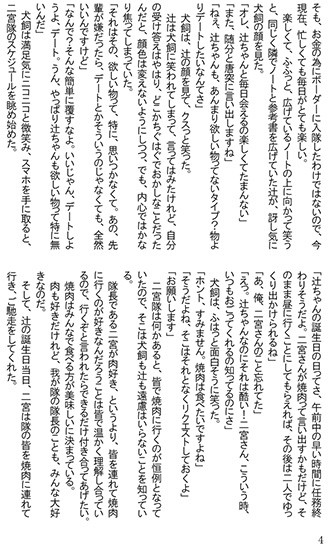 そも、お金の為にボーダーに入隊したわけではないので、今
現在、忙しくても毎日がとても楽しい。
　楽しくて、ふふっと、広げているノートの上に向かって笑う
と、同じく隣でノートと参考書を広げていた辻が、訝し気に
犬飼の顔を見た。
「ナシ。辻ちゃんと毎日会えるの楽しくてたまんない」
「また、随分と唐突に言い出しますね」
　犬飼は、辻の顔を見て、クスっと笑った。
「ねぇ、辻ちゃんも、あんまり欲しい物ってないタイプ？物よ
りデートしたいなんてさ」
　辻は犬飼に笑われてしまって、言ってはみたけれど、自分
の受け答えはやはり、どこかちぐはぐでおかしなことだった
んだと、顔色は変えないようにしつつ、でも、内心ではかな
り焦ってしまっていた。
「それはその、欲しい物って、特に、思いつかなくて。あの、先
輩が嫌だったら、デートとかそういうのじゃなくても、全然
いいんですけど」
「なんでそんな簡単に覆すなよ。いいじゃん、デートしよ
うよ、デート。うん、やっぱり辻ちゃんも欲しい物って特に無
いんだ」
　犬飼は満足気にニコニコと微笑み、スマホを手に取ると、
二宮隊のスケジュールを眺め始めた。
「辻ちゃんの誕生日の日ってさ、午前中の早い時間に任務終
わりそうだよ。二宮さんが焼肉って言い出すかもだけど、そ
のまま昼に行くことにしてもらえれば、その後は二人でゆっ
くり出かけられるね」
「あ、俺、二宮さんのこと忘れてた」
「えっ。辻ちゃんなのにそれは酷い！二宮さん、こういう時、
いつもおごってくれるの知ってるのにさ」
　犬飼は、ふはっと面白そうに笑った。
「ホント、すみません。焼肉は食べたいですよね」
「そうだよね、そこはそれとなくリクエストしておくよ」
「お願いします」
　二宮隊は何かあると、皆で焼肉に行くのが恒例となって
いたので、そこは犬飼も辻も遠慮はいらないことを知ってい
た。
　隊長である二宮が肉好き、というより、皆を連れて焼肉
に行くのが好きなんだろうことは皆で温かく理解し合ってい
るので、行くぞと言われたらできるだけ付き合ってあげたい。
　焼肉はみんなで食べる方が美味しいに決まっている。
　肉も好きだけれど、我が隊の隊長のことも、みんな大好
きなのだ。
　そして、辻の誕生日当日、二宮は隊の皆を焼肉に連れて
行き、ご馳走をしてくれた。
4